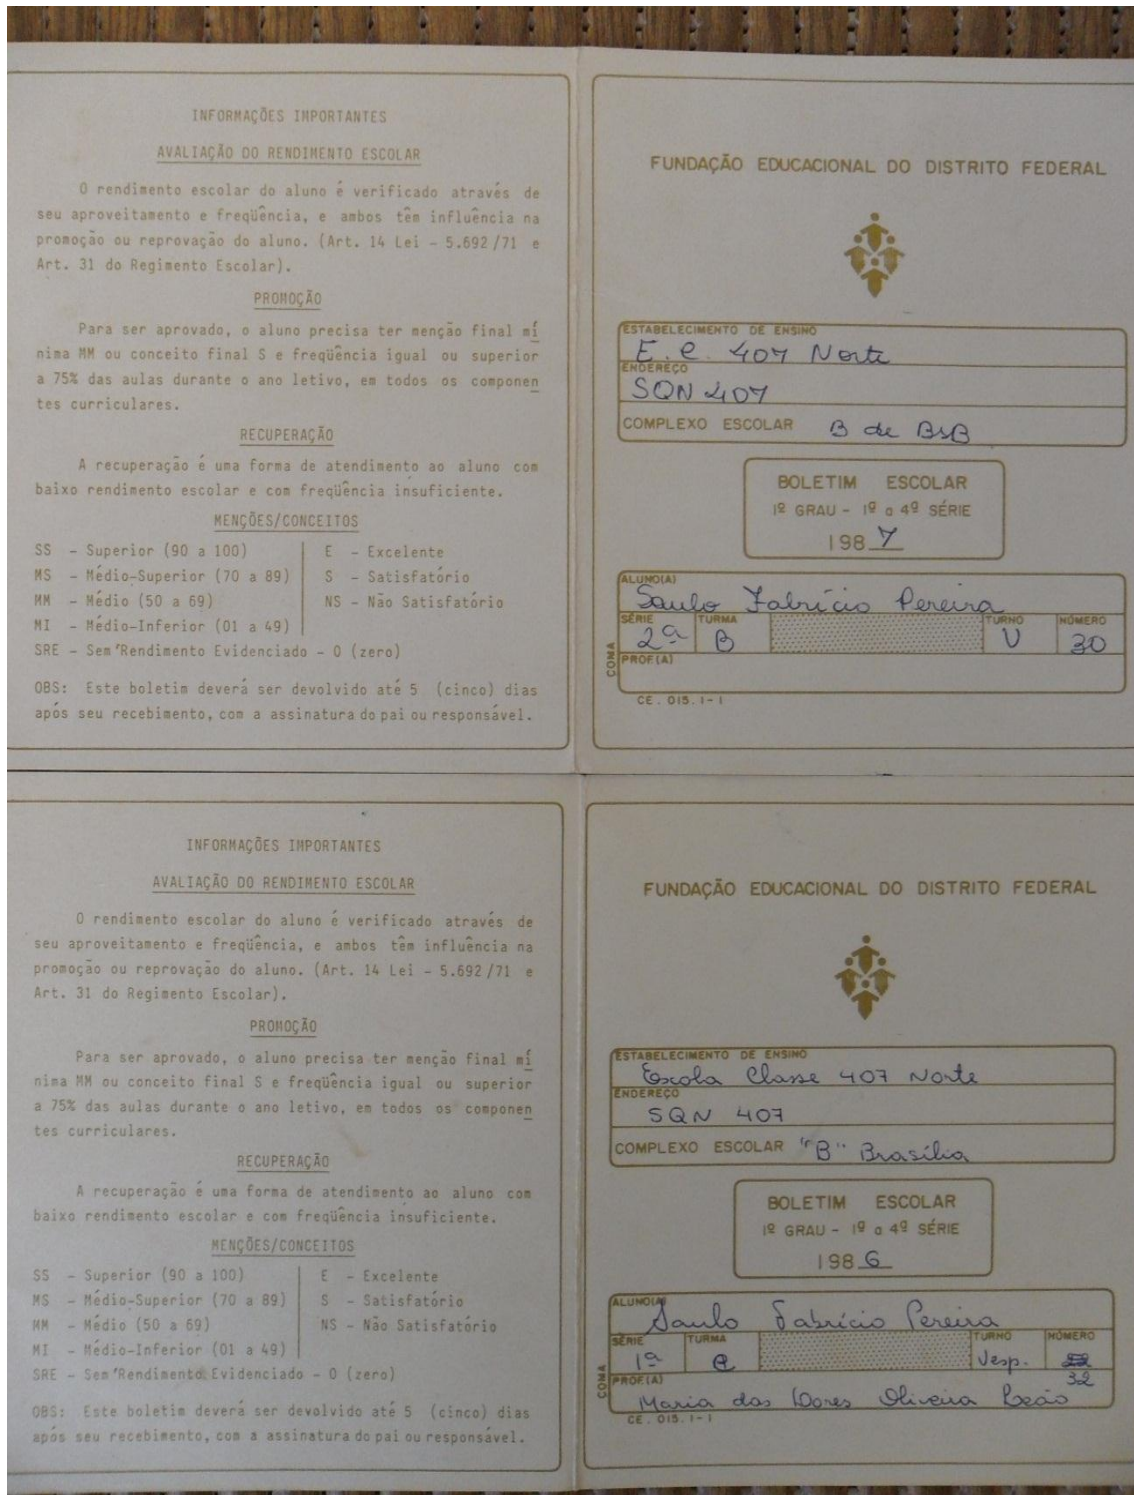 INFORMAÇÕES IMPORTANTES
AVALIAÇÃO DO RENDIMENTO ESCOLAR
O rendimento escolar do aluno é verificado através de
seu aproveitamento e freqüência, e ambos têm influência na
promoção ou reprovação do aluno. (Art. 14 Lei - 5.692/71 e
Art. 31 do Regimento Escolar).
PROMOÇÃO
Para ser aprovado, o aluno precisa ter menção final mí
nima MM ou conceito final S e freqüência igual ou superior
a 75% das aulas durante o ano letivo, em todos os componen
tes curriculares.
RECUPERAÇÃO
A recuperação é uma forma de atendimento ao aluno com
baixo rendimento escolar e com freqüência insuficiente.
MENÇÕES/CONCEITOS
SS - Superior (90 a 100) E - Excelente
MS - Médio-Superior (70 a 89) S - Satisfatório
MM - Médio (50 a 69) NS - Não Satisfatório
MI - Médio-Inferior (01 a 49)
SRE - Sem Rendimento Evidenciado - 0 (zero)
OBS: Este boletim deverá ser devolvido até 5 (cinco) dias
após seu recebimento, com a assinatura do pai ou responsável.
FUNDAÇÃO EDUCACIONAL DO DISTRITO FEDERAL
ESTABELECIMENTO DE ENSINO
E. C. 407 Norte
ENDEREÇO
SQN 407
COMPLEXO ESCOLAR B de BsB
BOLETIM ESCOLAR
1º GRAU - 1ª a 4ª SÉRIE
1987
ALUNO(A)
Saulo Fabrício Pereira
SÉRIE TURMA TURNO NÚMERO
2ª B V 30
PROF(A)
COMA
CE. 015.1-1
INFORMAÇÕES IMPORTANTES
AVALIAÇÃO DO RENDIMENTO ESCOLAR
O rendimento escolar do aluno é verificado através de
seu aproveitamento e freqüência, e ambos têm influência na
promoção ou reprovação do aluno. (Art. 14 Lei - 5.692/71 e
Art. 31 do Regimento Escolar).
PROMOÇÃO
Para ser aprovado, o aluno precisa ter menção final mí
nima MM ou conceito final S e freqüência igual ou superior
a 75% das aulas durante o ano letivo, em todos os componen
tes curriculares.
RECUPERAÇÃO
A recuperação é uma forma de atendimento ao aluno com
baixo rendimento escolar e com freqüência insuficiente.
MENÇÕES/CONCEITOS
SS - Superior (90 a 100) E - Excelente
MS - Médio-Superior (70 a 89) S - Satisfatório
MM - Médio (50 a 69) NS - Não Satisfatório
MI - Médio-Inferior (01 a 49)
SRE - Sem Rendimento Evidenciado - 0 (zero)
OBS: Este boletim deverá ser devolvido até 5 (cinco) dias
após seu recebimento, com a assinatura do pai ou responsável.
FUNDAÇÃO EDUCACIONAL DO DISTRITO FEDERAL
ESTABELECIMENTO DE ENSINO
Escola Classe 407 Norte
ENDEREÇO
SQN 407
COMPLEXO ESCOLAR "B" Brasília
BOLETIM ESCOLAR
1º GRAU - 1ª a 4ª SÉRIE
1986
ALUNO(A)
Saulo Fabrício Pereira
SÉRIE TURMA TURNO NÚMERO
1ª C Vesp. 32
PROF(A)
Maria das Dores Oliveira Leão
COMA
CE. 015.1-1